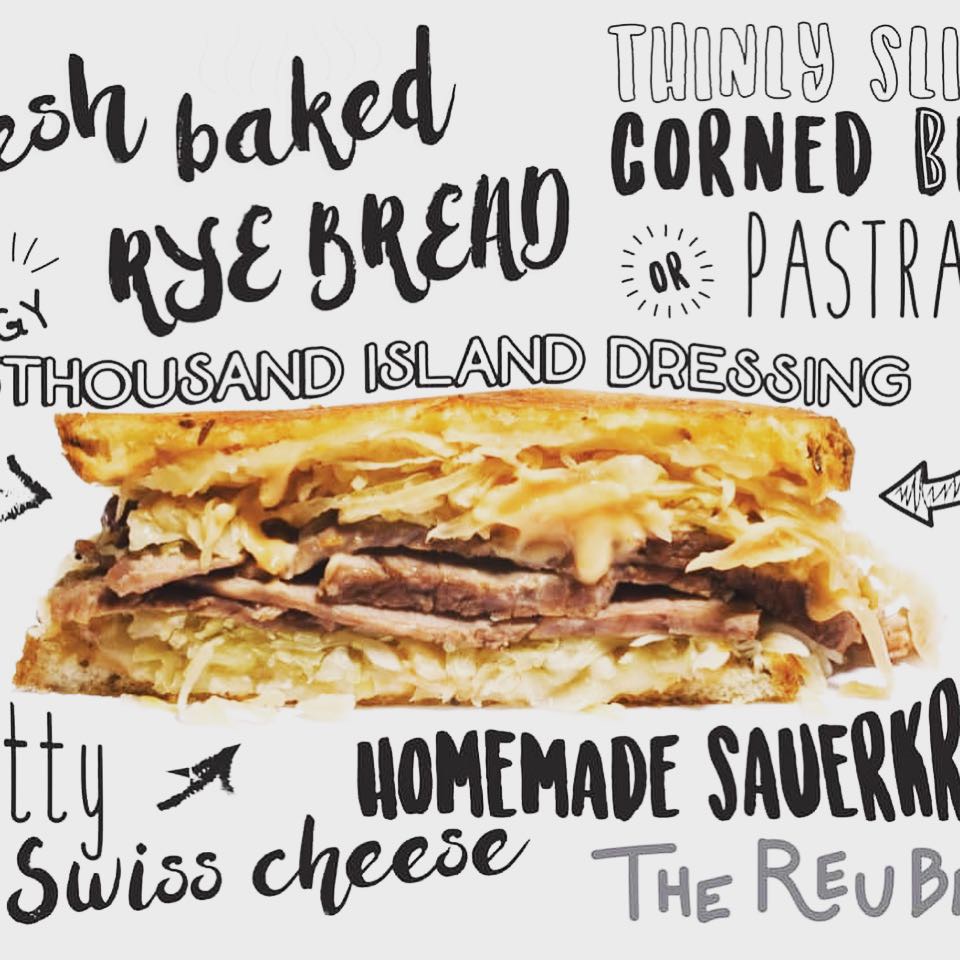 esh baked
RYE BREAD
THINLY SLI
CORNED B
OR PASTRA
GY
THOUSAND ISLAND DRESSING
tty
HOMEMADE SAUERKR
Swiss cheese
THE REUB